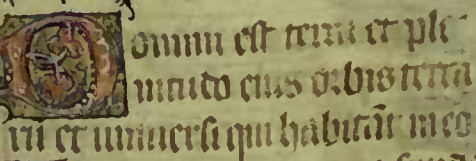 Domini est terra et ple
nitudo eius orbis terra
rũ et uniuersi qui habitãt in eo